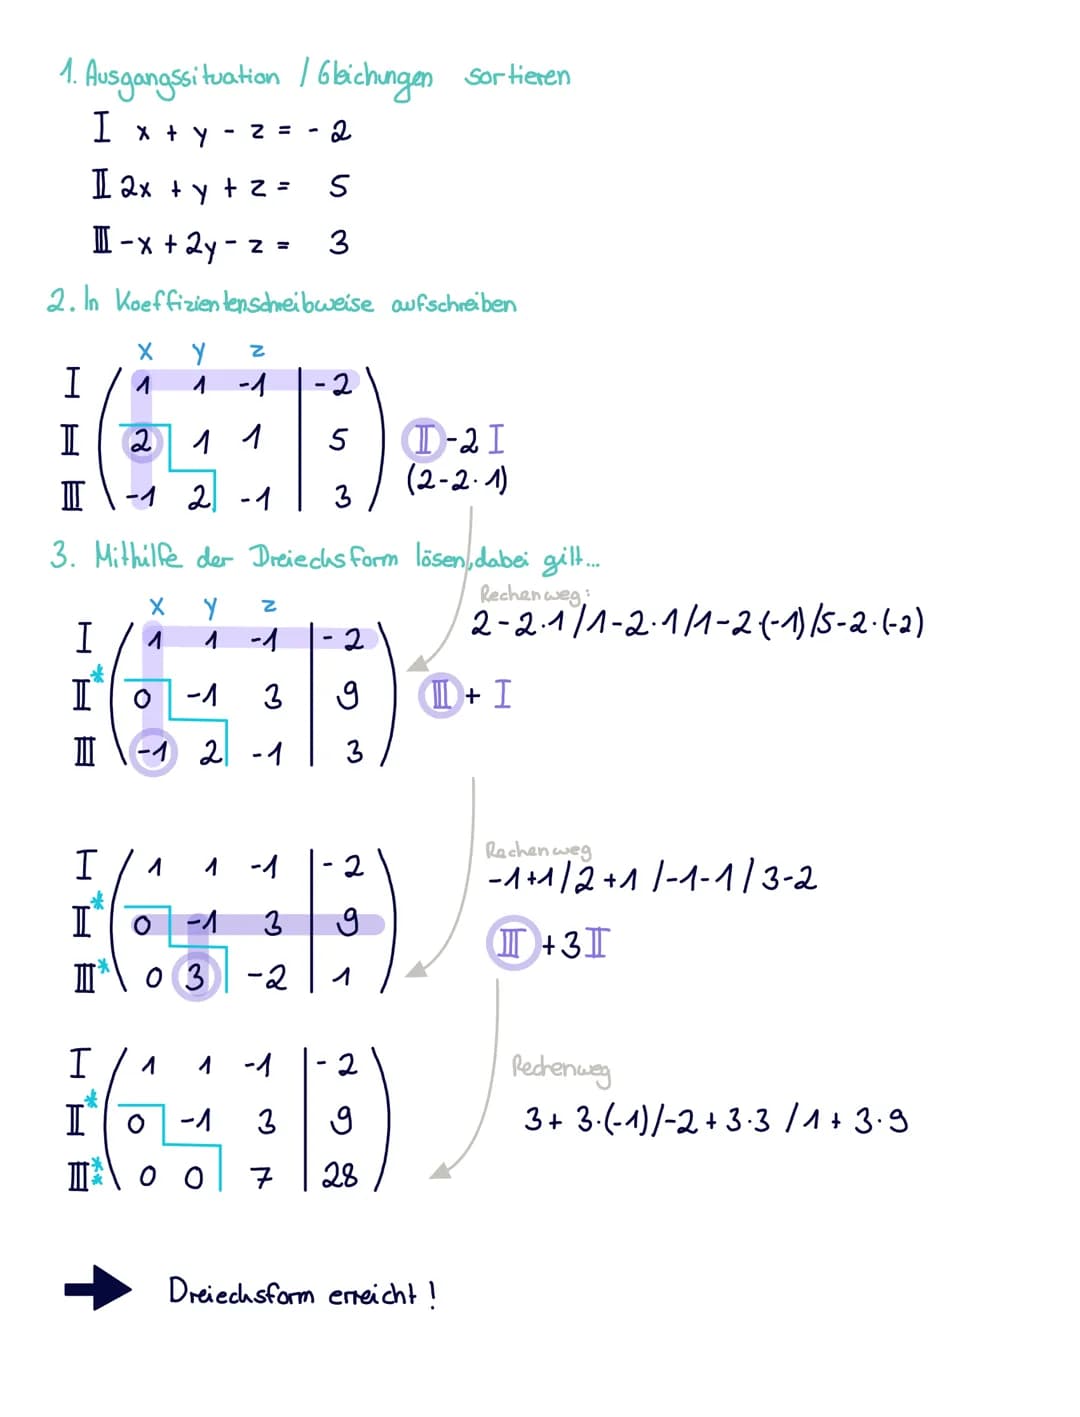 1. Ausgangssituation / Gleichungen sortieren
I x + y - z = - 2
II 2x + y + z = 5
III -x + 2y - z = 3
2. In Koeffizientenschreibweise aufschreiben
x y z
I ( 1 1 -1 | -2 )
II ( 2 1 1 | 5 ) II - 2 I
III ( -1 2 -1 | 3 ) (2-2·1)
3. Mithilfe der Dreiecksform lösen, dabei gilt...
Rechenweg:
x y z
2-2·1/1-2·1/1-2(-1)/5-2·(-2)
I ( 1 1 -1 | -2 )
II* ( 0 -1 3 | 9 ) III + I
III ( -1 2 -1 | 3 )
Rechenweg
I ( 1 1 -1 | -2 ) -1+1/2+1/-1-1/3-2
II* ( 0 -1 3 | 9 ) III + 3 II
III* ( 0 3 -2 | 1 )
I ( 1 1 -1 | -2 ) Rechenweg
II* ( 0 -1 3 | 9 ) 3+3·(-1)/-2+3·3/1+3·9
III** ( 0 0 7 | 28 )
➡ Dreiecksform erreicht!